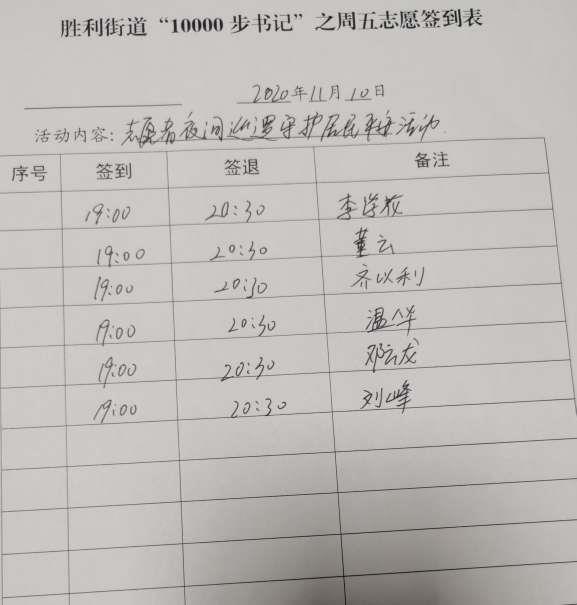 胜利街道“10000步书记”之周五志愿签到表
2020年11月10日
活动内容：志愿者夜间巡逻守护居民平安活动
序号 签到 签退 备注
19:00 20:30 李学
19:00 20:30 董云
19:00 20:30 齐以利
19:00 20:30 温华
19:00 20:30 邓云龙
19:00 20:30 刘峰